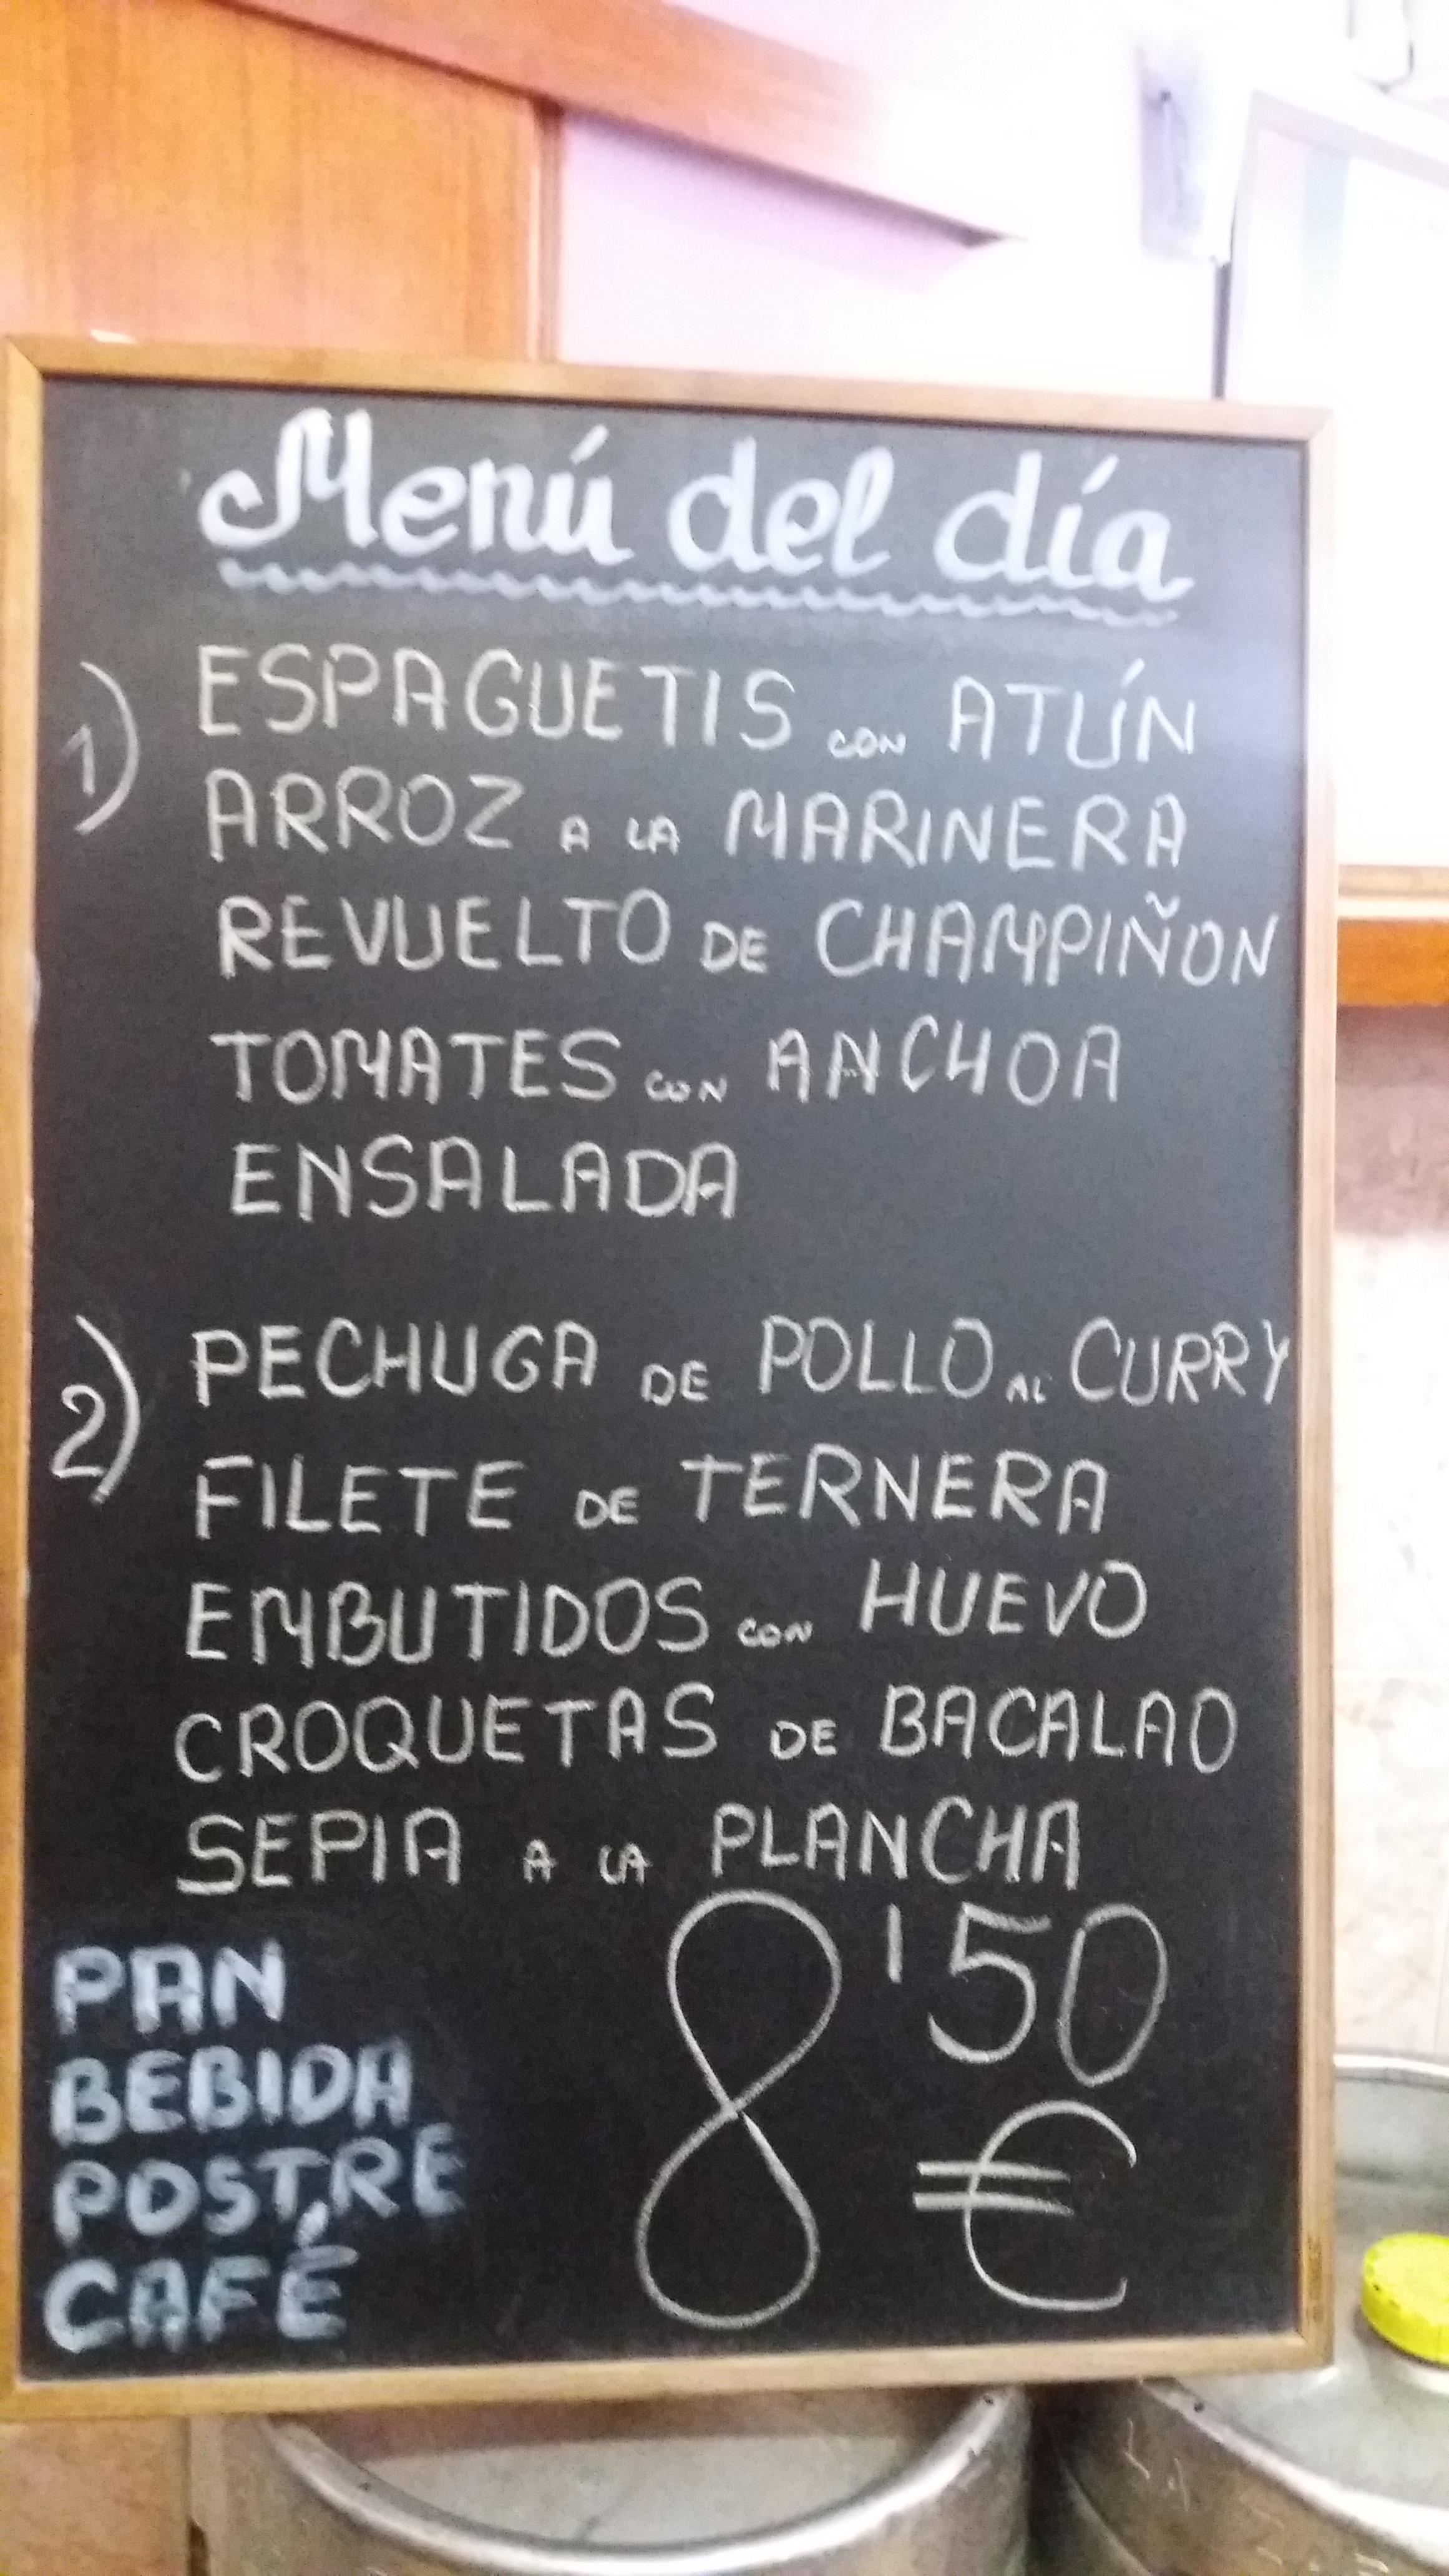 Menú del día
1) ESPAGUETIS CON ATÚN
ARROZ A LA MARINERA
REVUELTO DE CHAMPIÑON
TOMATES CON ANCHOA
ENSALADA
2) PECHUGA DE POLLO AL CURRY
FILETE DE TERNERA
EMBUTIDOS CON HUEVO
CROQUETAS DE BACALAO
SEPIA A LA PLANCHA
PAN
BEBIDA
POSTRE
CAFÉ
8'50
€